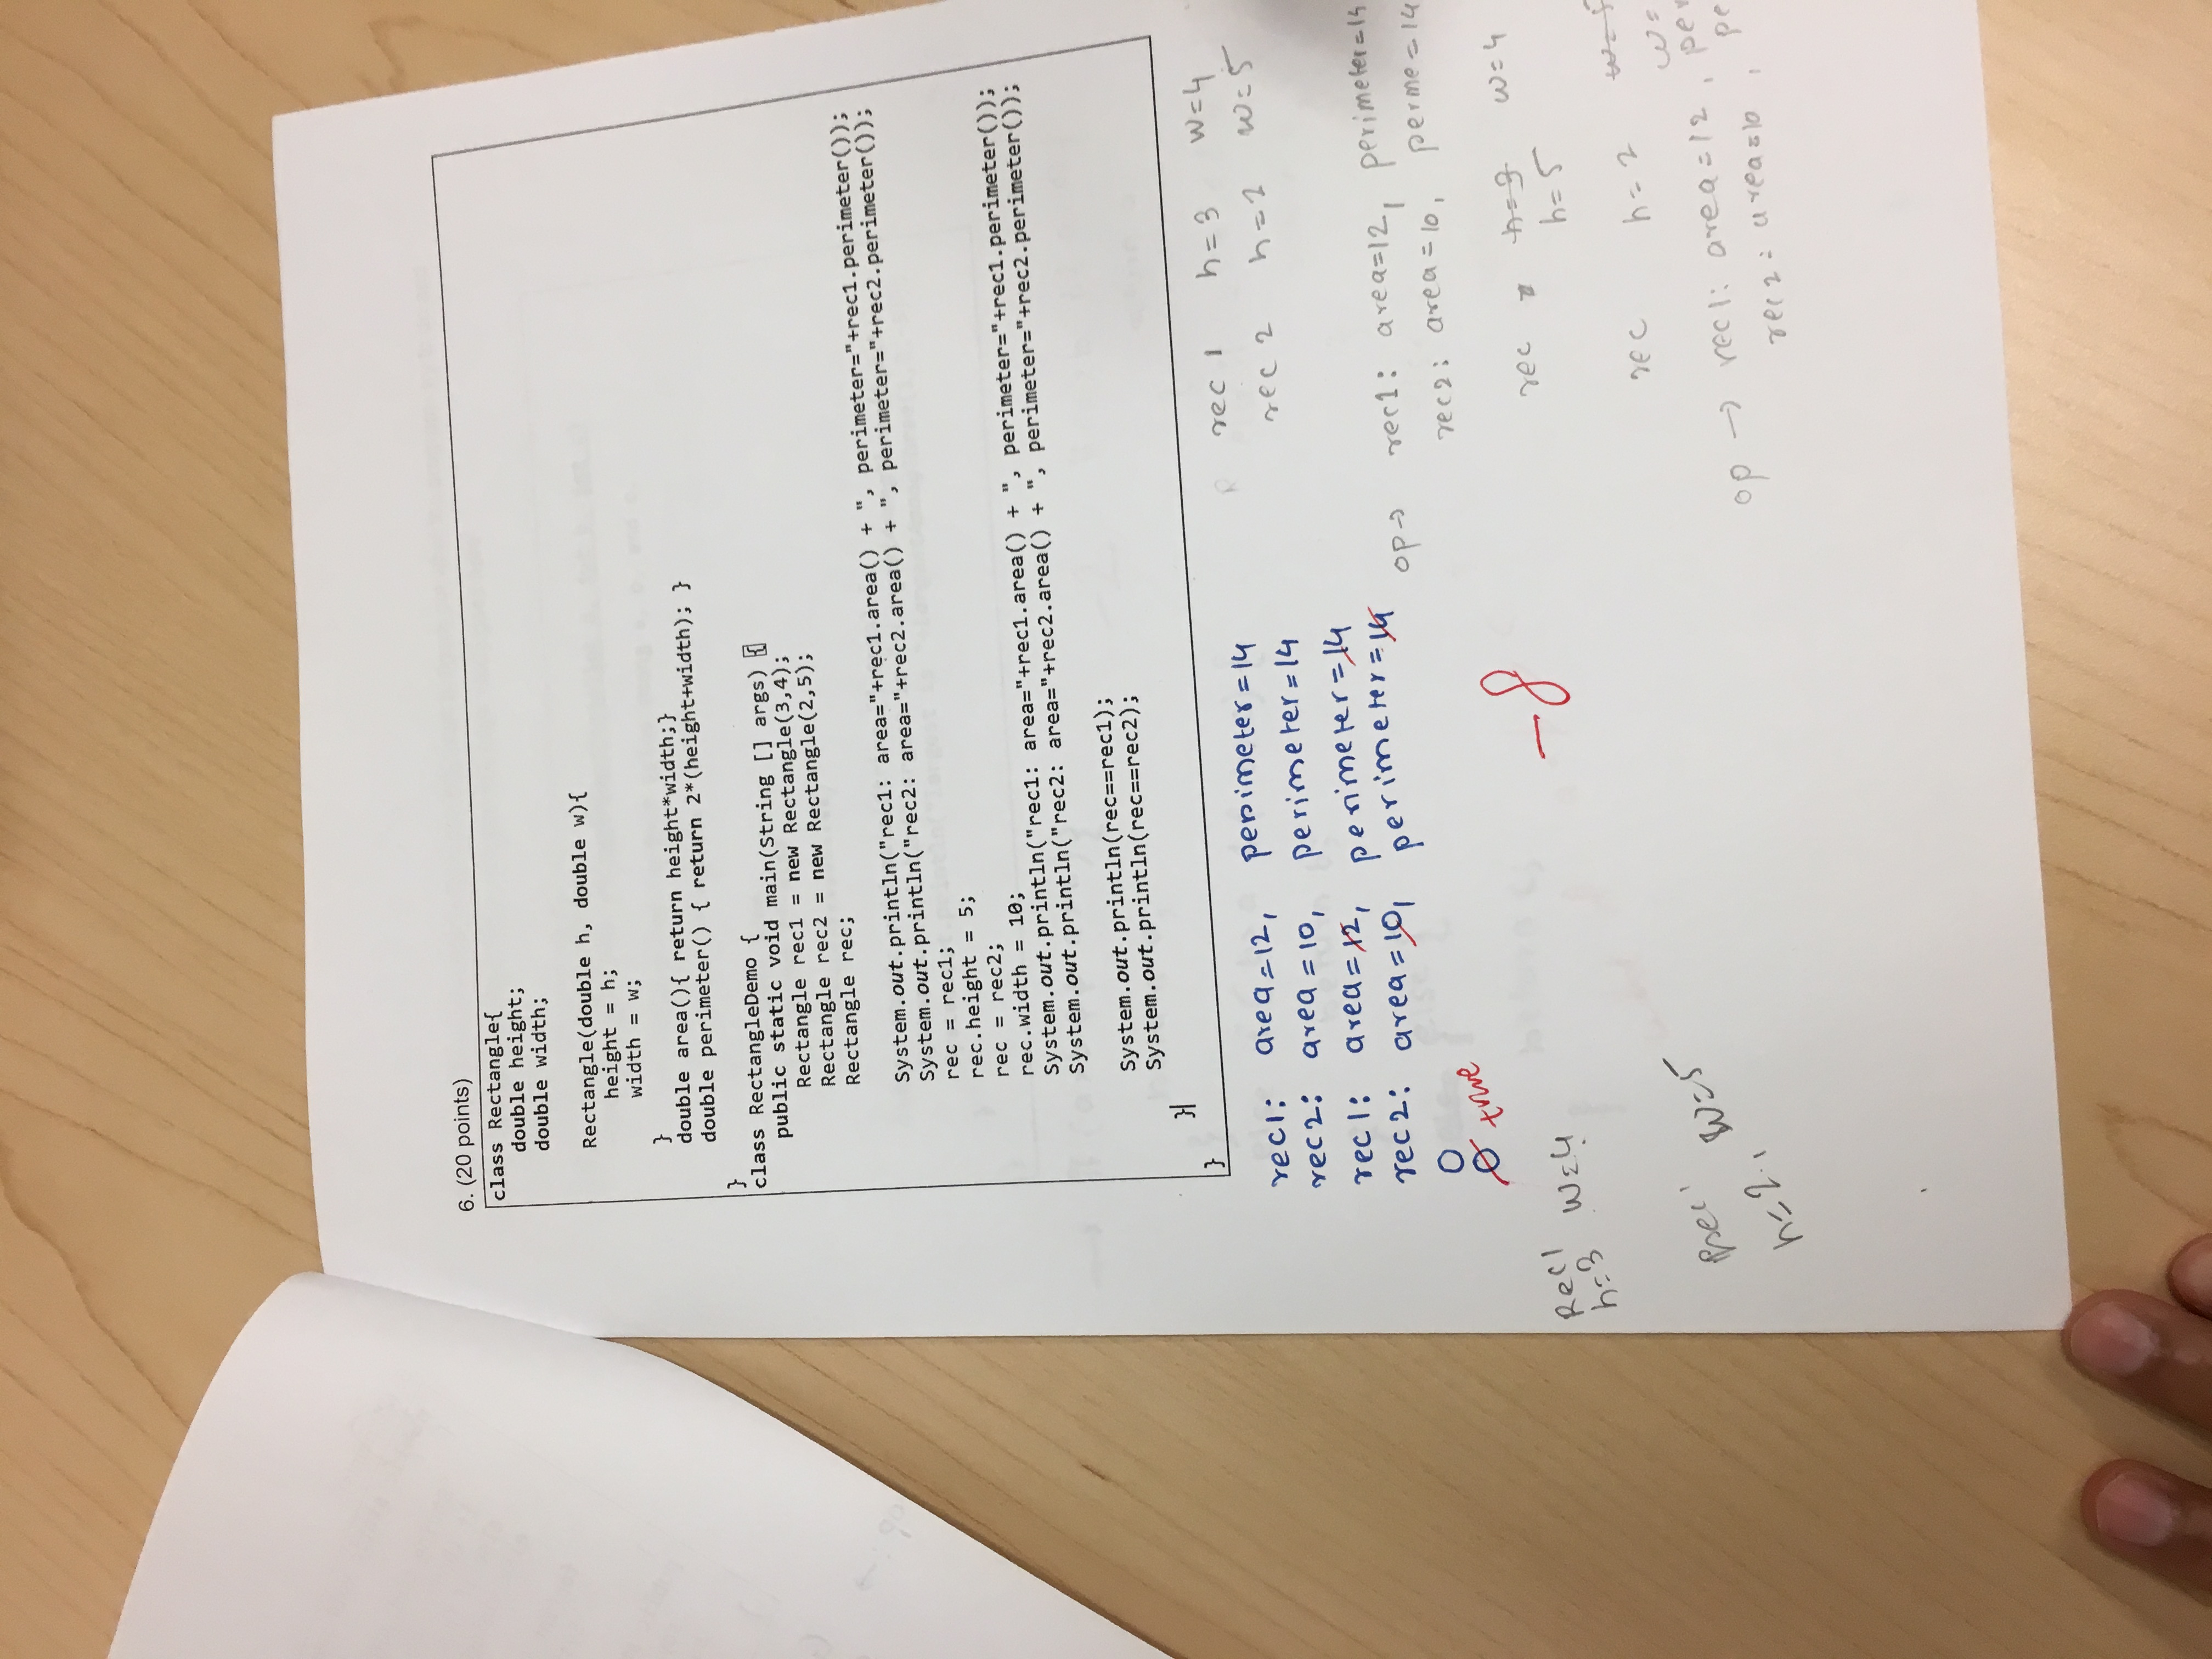 6. (20 points)
class Rectangle{
double height;
double width;
Rectangle(double h, double w){
height = h;
width = w;
}
double area(){ return height*width;}
double perimeter() { return 2*(height+width); }
}
class RectangleDemo {
public static void main(String [] args) {
Rectangle rec1 = new Rectangle(3,4);
Rectangle rec2 = new Rectangle(2,5);
Rectangle rec;
System.out.println("rec1: area="+rec1.area() + ", perimeter="+rec1.perimeter());
System.out.println("rec2: area="+rec2.area() + ", perimeter="+rec2.perimeter());
rec = rec1;
rec.height = 5;
rec = rec2;
rec.width = 10;
System.out.println("rec1: area="+rec1.area() + ", perimeter="+rec1.perimeter());
System.out.println("rec2: area="+rec2.area() + ", perimeter="+rec2.perimeter());
System.out.println(rec==rec1);
System.out.println(rec==rec2);
}
}
rec1: area=12, perimeter=14
rec2: area=10, perimeter=14
rec1: area=12, perimeter=14
rec2: area=10, perimeter=14
0
0 true
-8
Rec1
h=3 W=4
h=2, W=5
rec 1 h=3 W=4
rec 2 h=2 w=5
op→ rec1: area=12, perimeter=14
rec2: area=10, perme=14
rec h=3 w=4
h=5
rec h=2
w=
op → rec1: area=12, per
rec2: area=10, pe